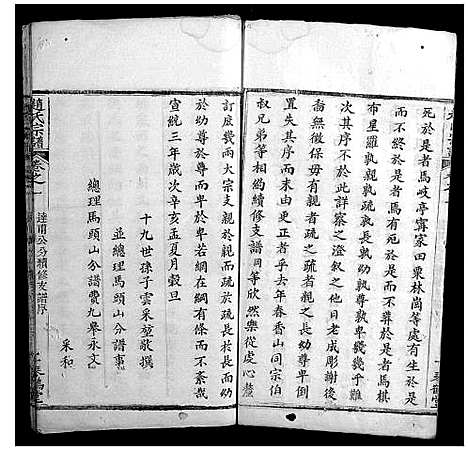 死於是者馬岐亭甯家田栗林崗等處有生於是
而不終於是者馬有死於是而不葬於是者馬棋
布星羅孰親孰疏孰長孰幼孰尊孰卑幾幾乎難
次其序而詳察之澄叙之他日老成彫謝後
有興復保毋有親者疏之疏者親之長幼尊卑倒
置失其序而未由更正者乎去年春香山同宗伯
叔兄弟等相約續修支譜同等欣然樂從處心釐
訂庶幾兩大宗支親於疏於長於長而幼
於幼尊於尊而卑於卑若網在綱有條而不紊哉
宣統三年歲次辛亥孟夏月穀旦
十九世孫子雲采莖敬撰
並總理馬頭山分譜事
總理馬頭山分譜費九舉永文
采和
趙氏宗譜
卷之一
達甫公分續修支譜序